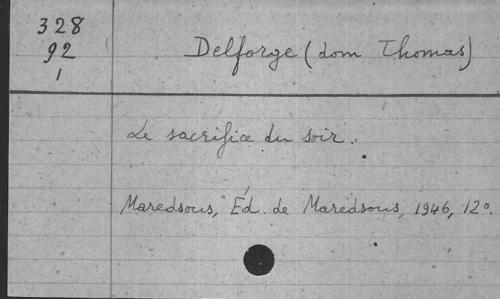 328
92
1
Delforge (dom Thomas)
Le sacrifice du soir.
Maredsous, Éd. de Maredsous, 1946, 12°.